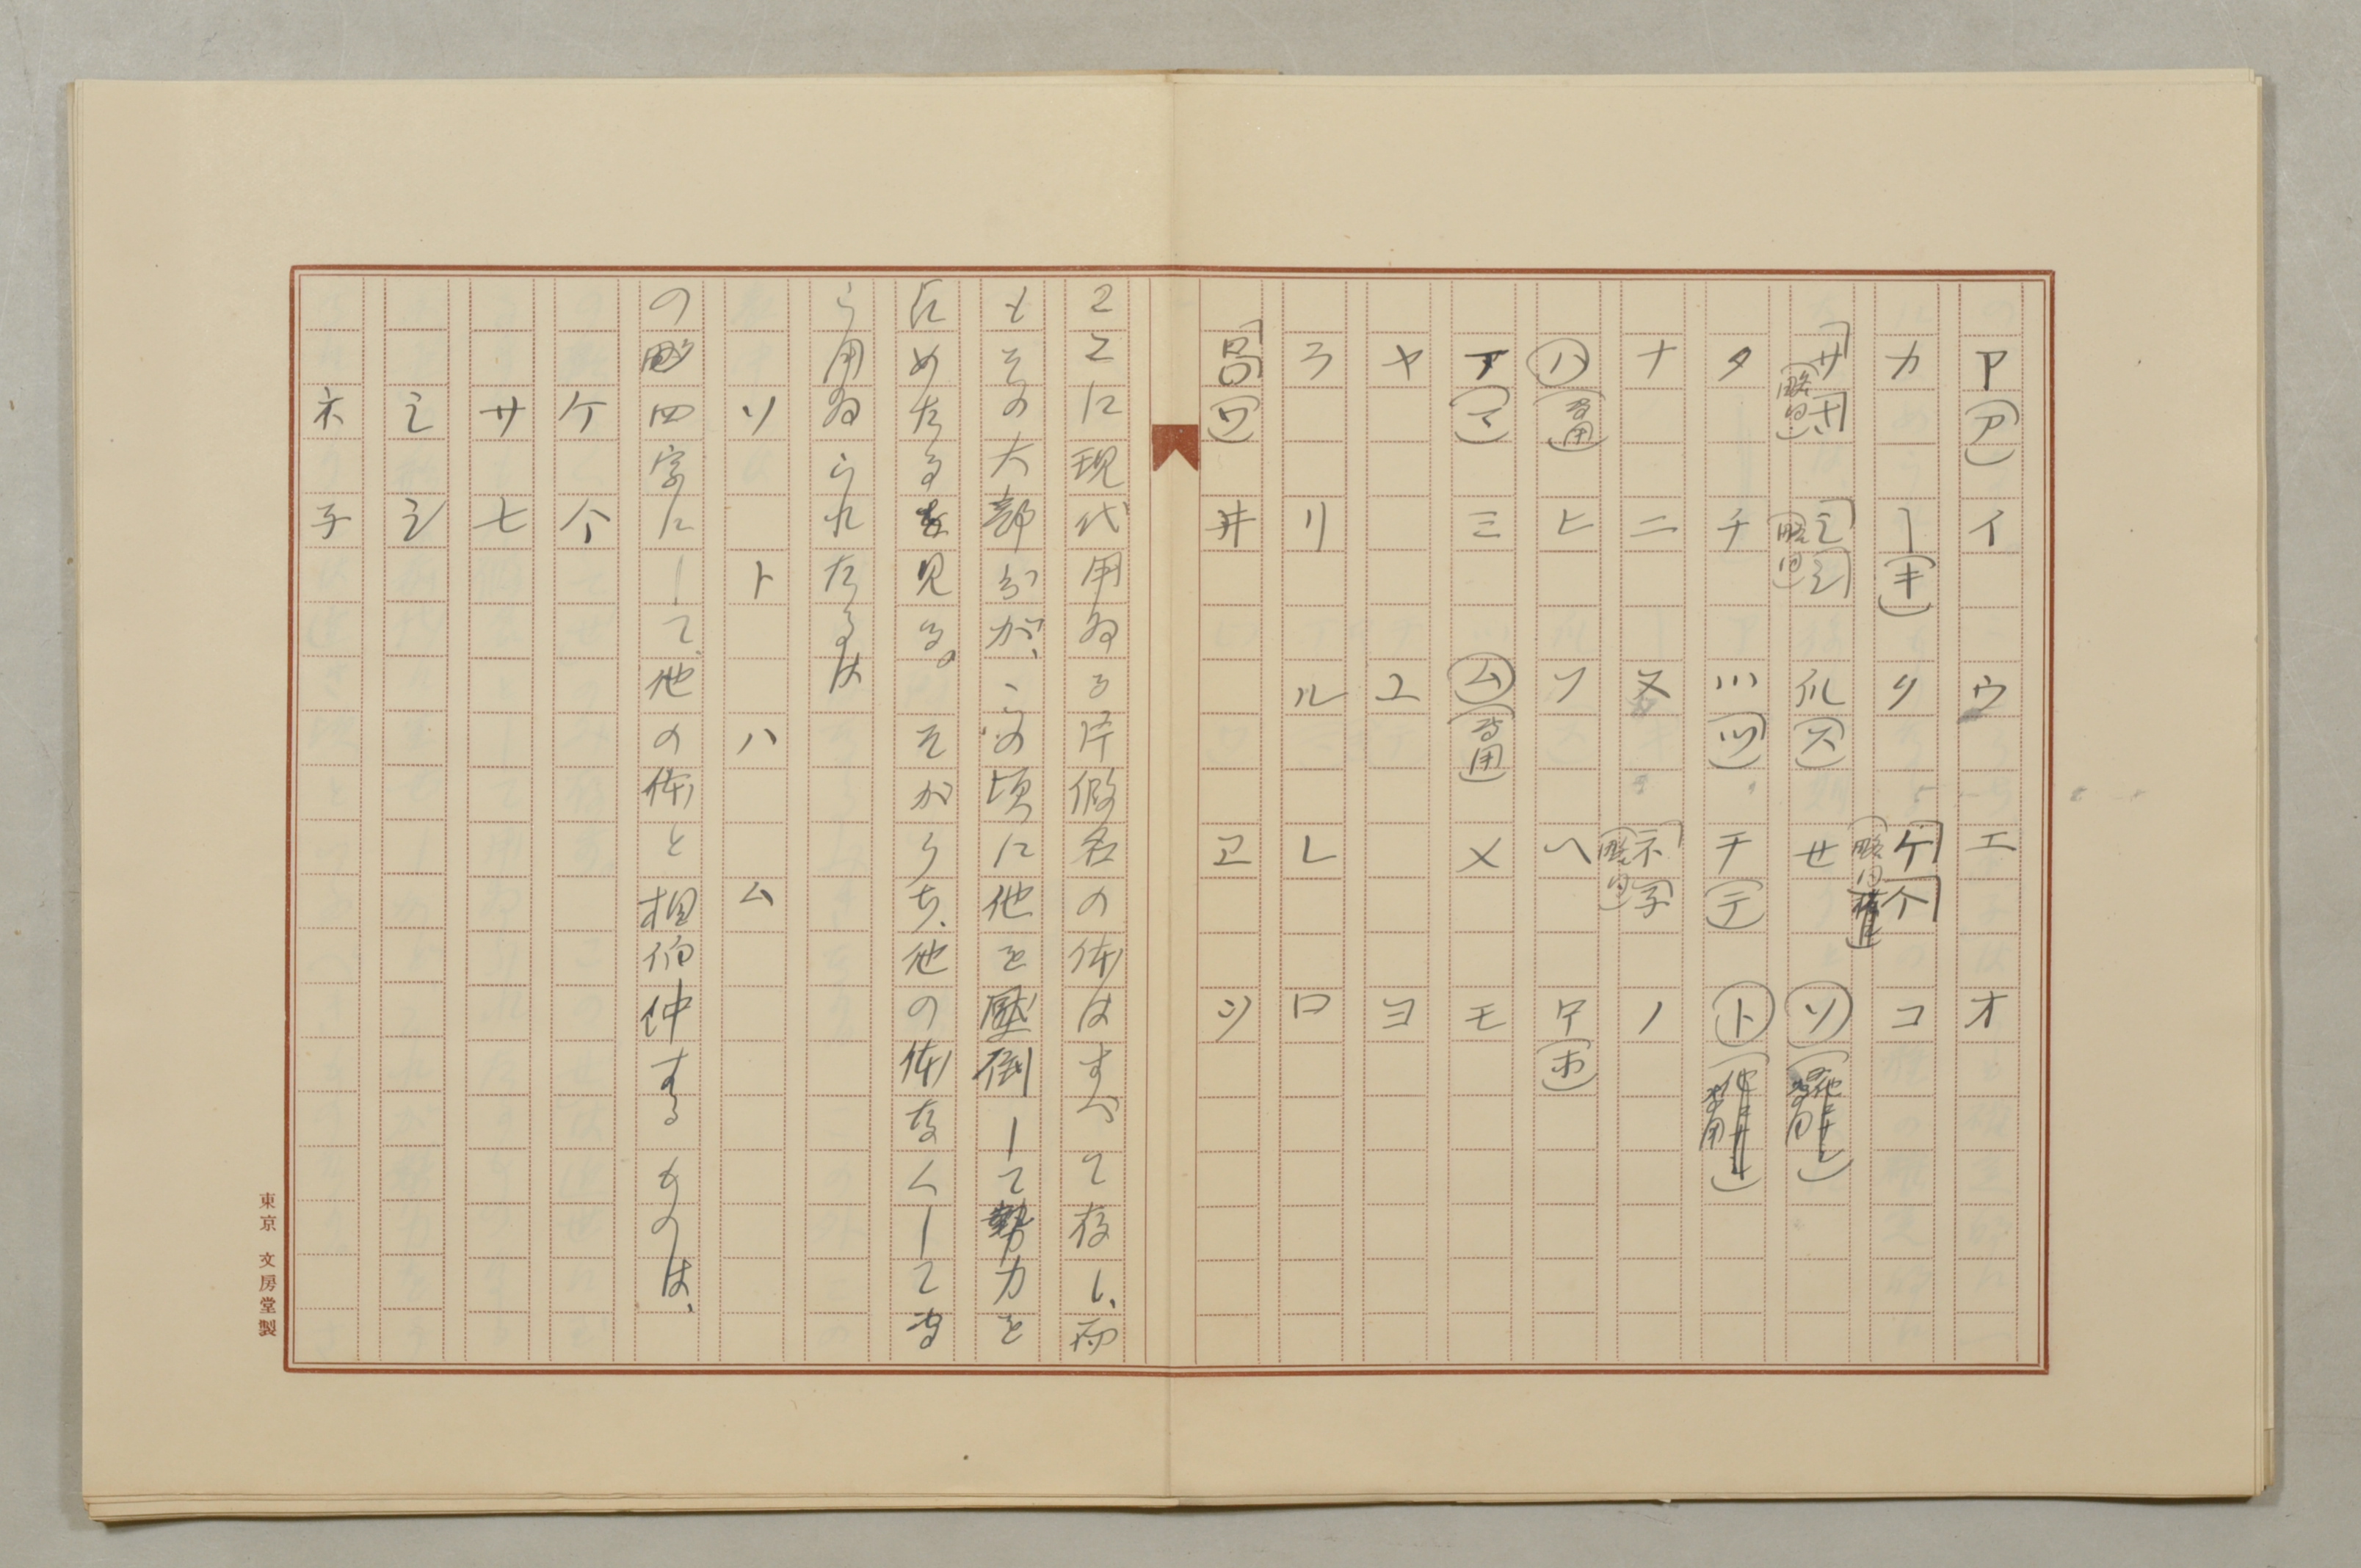 ア(ア) イ ウ エ オ
カ ｜(キ) リ ケ个(略同) コ
サ七(略同) 〻シ(略同) 爪(ス) せ ソ
タ チ 川(ツ) チ(テ) ト
ナ ニ ヌ ネ子(略同) ノ
ハ(専用) ヒ フ ヘ 戸(ホ)
マ(マ) ミ ム(専用) メ モ
ヤ ユ ヨ
ラ リ ル レ ロ
呂(ワ) 井 ヱ シ
ことに現代用ゐる片假名の体はすべて存し、而
もその大部分が、この頃に他を壓倒して勢力を
占めたるを見る。そがうち、他の体なくして専
ら用ゐられたるは
ソ ト ハ ム
の略四字にして、他の体と相伯仲するものは、
ケ 个
サ 七
〻 シ
ネ 子
東京 文房堂製